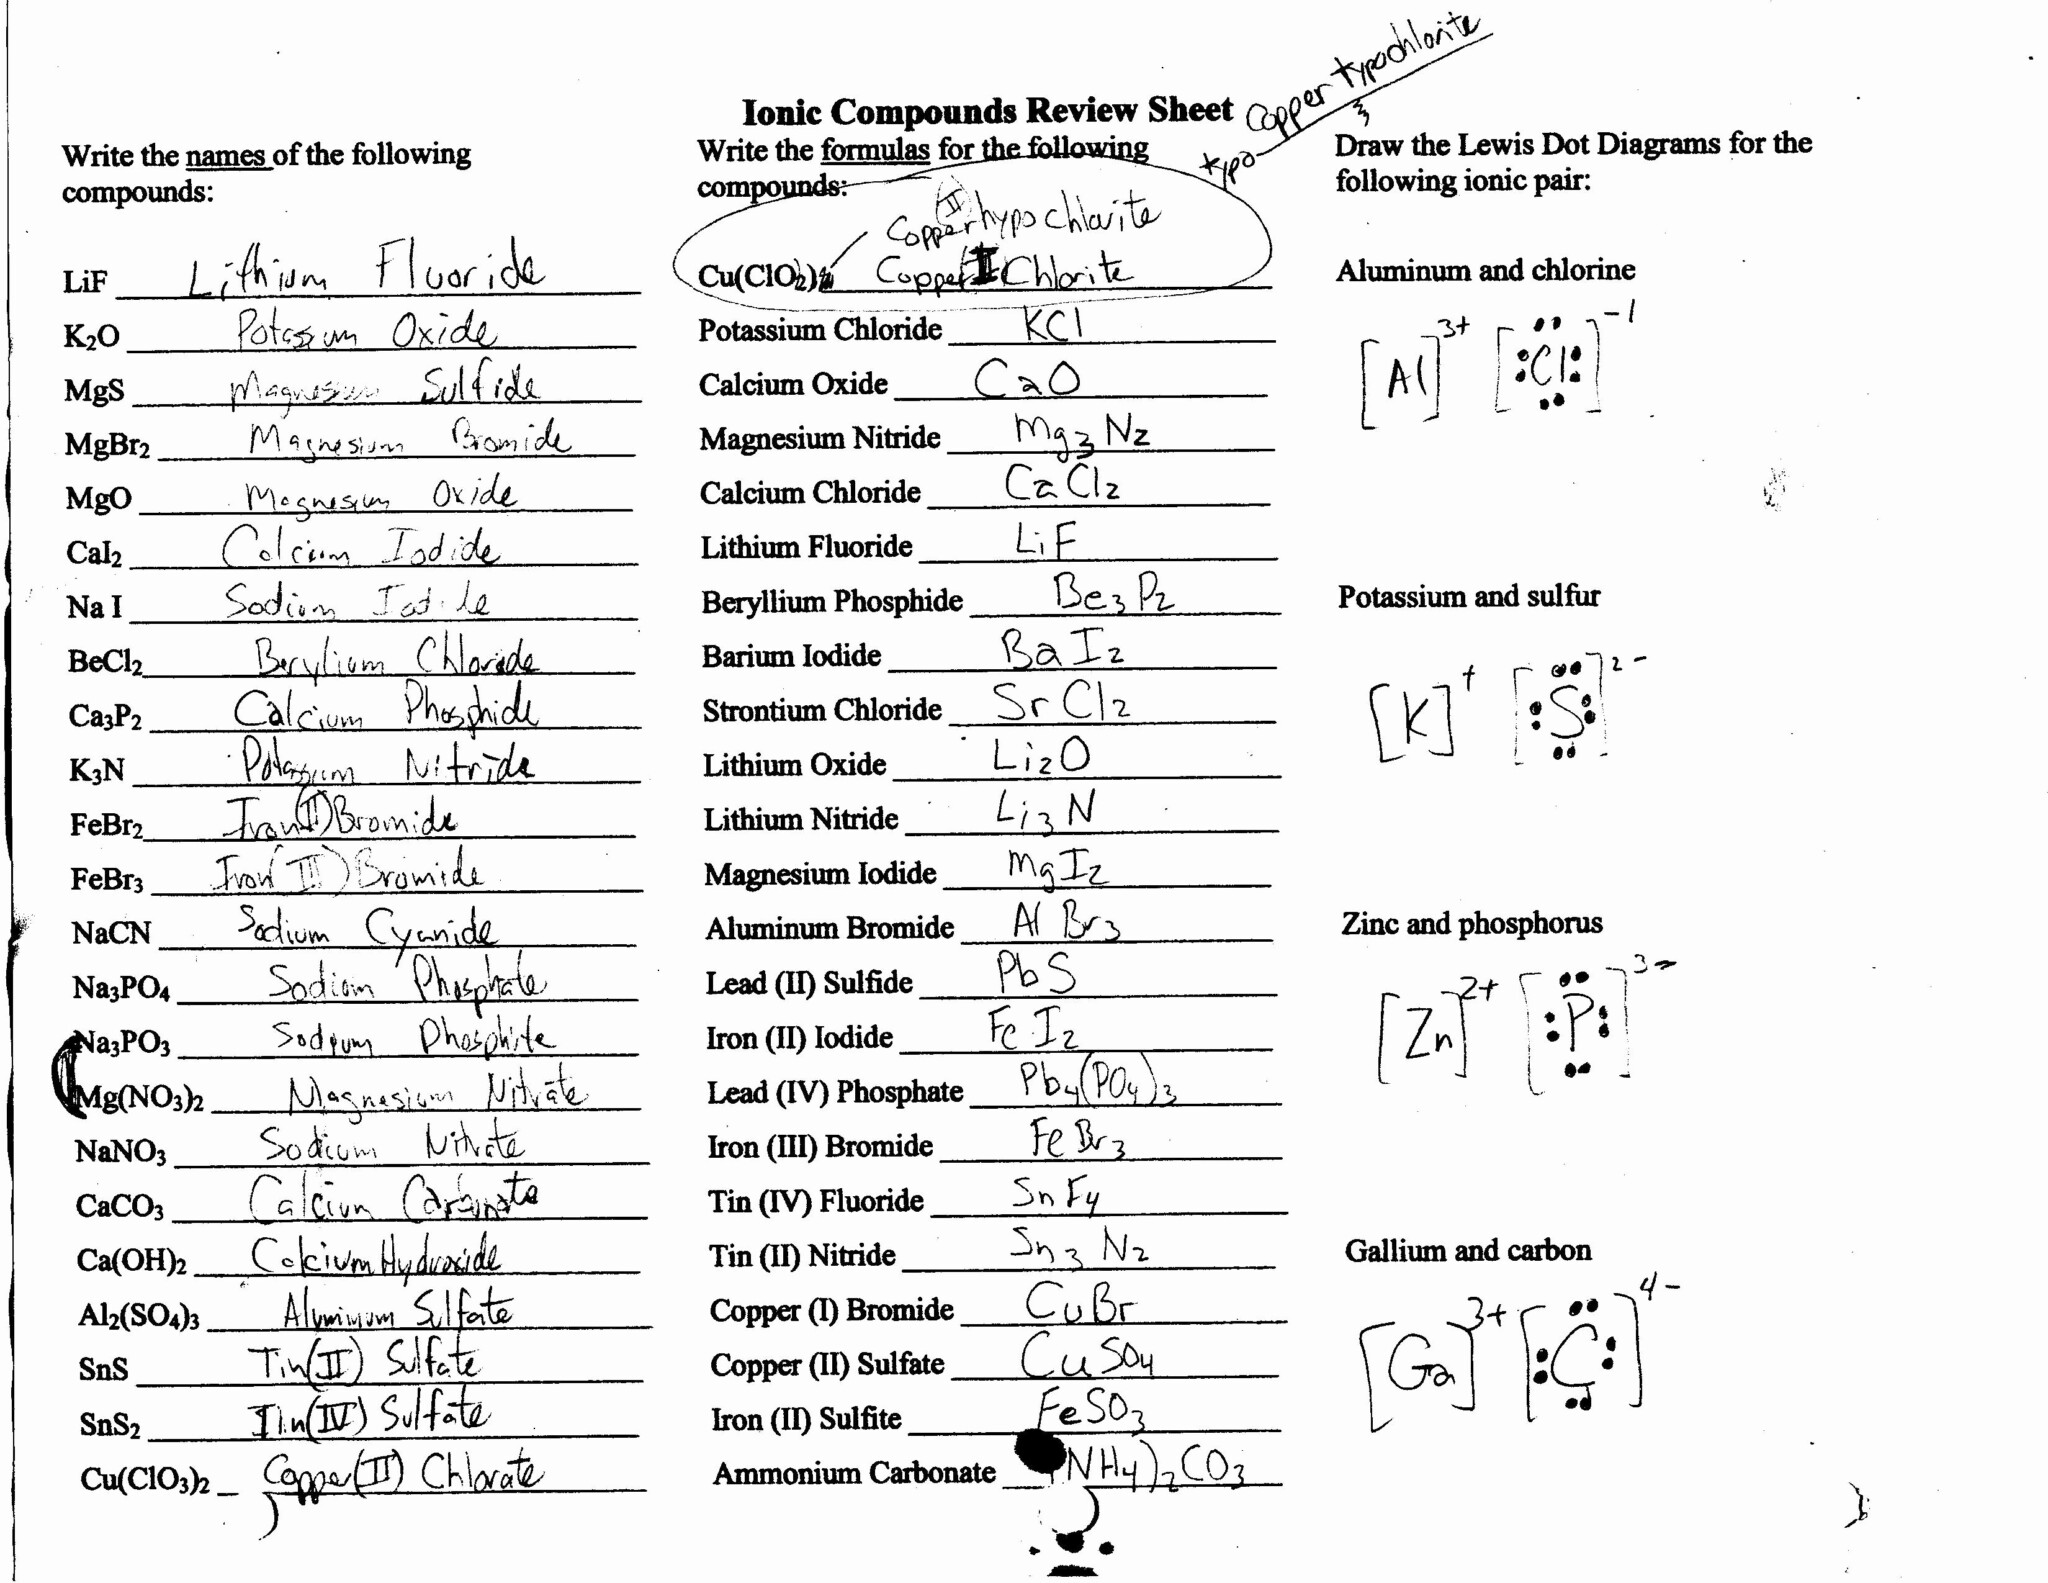 Copper Hypochlorite
typo
Ionic Compounds Review Sheet
Write the names of the following
compounds:
LiF Lithium Fluoride
K2O Potassium Oxide
MgS Magnesium Sulfide
MgBr2 Magnesium Bromide
MgO Magnesium Oxide
CaI2 Calcium Iodide
Na I Sodium Iodide
BeCl2 Berylium Chloride
Ca3P2 Calcium Phosphide
K3N Potassium Nitride
FeBr2 Iron(II) Bromide
FeBr3 Iron(III) Bromide
NaCN Sodium Cyanide
Na3PO4 Sodium Phosphate
Na3PO3 Sodium Phosphite
Mg(NO3)2 Magnesium Nitrate
NaNO3 Sodium Nitrate
CaCO3 Calcium Carbonate
Ca(OH)2 Calcium Hydroxide
Al2(SO4)3 Aluminum Sulfate
SnS Tin(II) Sulfate
SnS2 Tin(IV) Sulfate
Cu(ClO3)2 Copper(II) Chlorate
Write the formulas for the following
compounds:
Copper (II) hypochlorite
Cu(ClO2) Copper I Chlorite
Potassium Chloride KCl
Calcium Oxide CaO
Magnesium Nitride Mg3N2
Calcium Chloride CaCl2
Lithium Fluoride LiF
Beryllium Phosphide Be3P2
Barium Iodide BaI2
Strontium Chloride SrCl2
Lithium Oxide Li2O
Lithium Nitride Li3N
Magnesium Iodide MgI2
Aluminum Bromide AlBr3
Lead (II) Sulfide PbS
Iron (II) Iodide FeI2
Lead (IV) Phosphate Pb4(PO4)3
Iron (III) Bromide FeBr3
Tin (IV) Fluoride SnF4
Tin (II) Nitride Sn3N2
Copper (I) Bromide CuBr
Copper (II) Sulfate CuSO4
Iron (II) Sulfite FeSO3
Ammonium Carbonate (NH4)2CO3
Draw the Lewis Dot Diagrams for the
following ionic pair:
Aluminum and chlorine
[Al]3+ [Cl]-1
Potassium and sulfur
[K]+ [S]2-
Zinc and phosphorus
[Zn]2+ [P]3-
Gallium and carbon
[Ga]3+ [C]4-